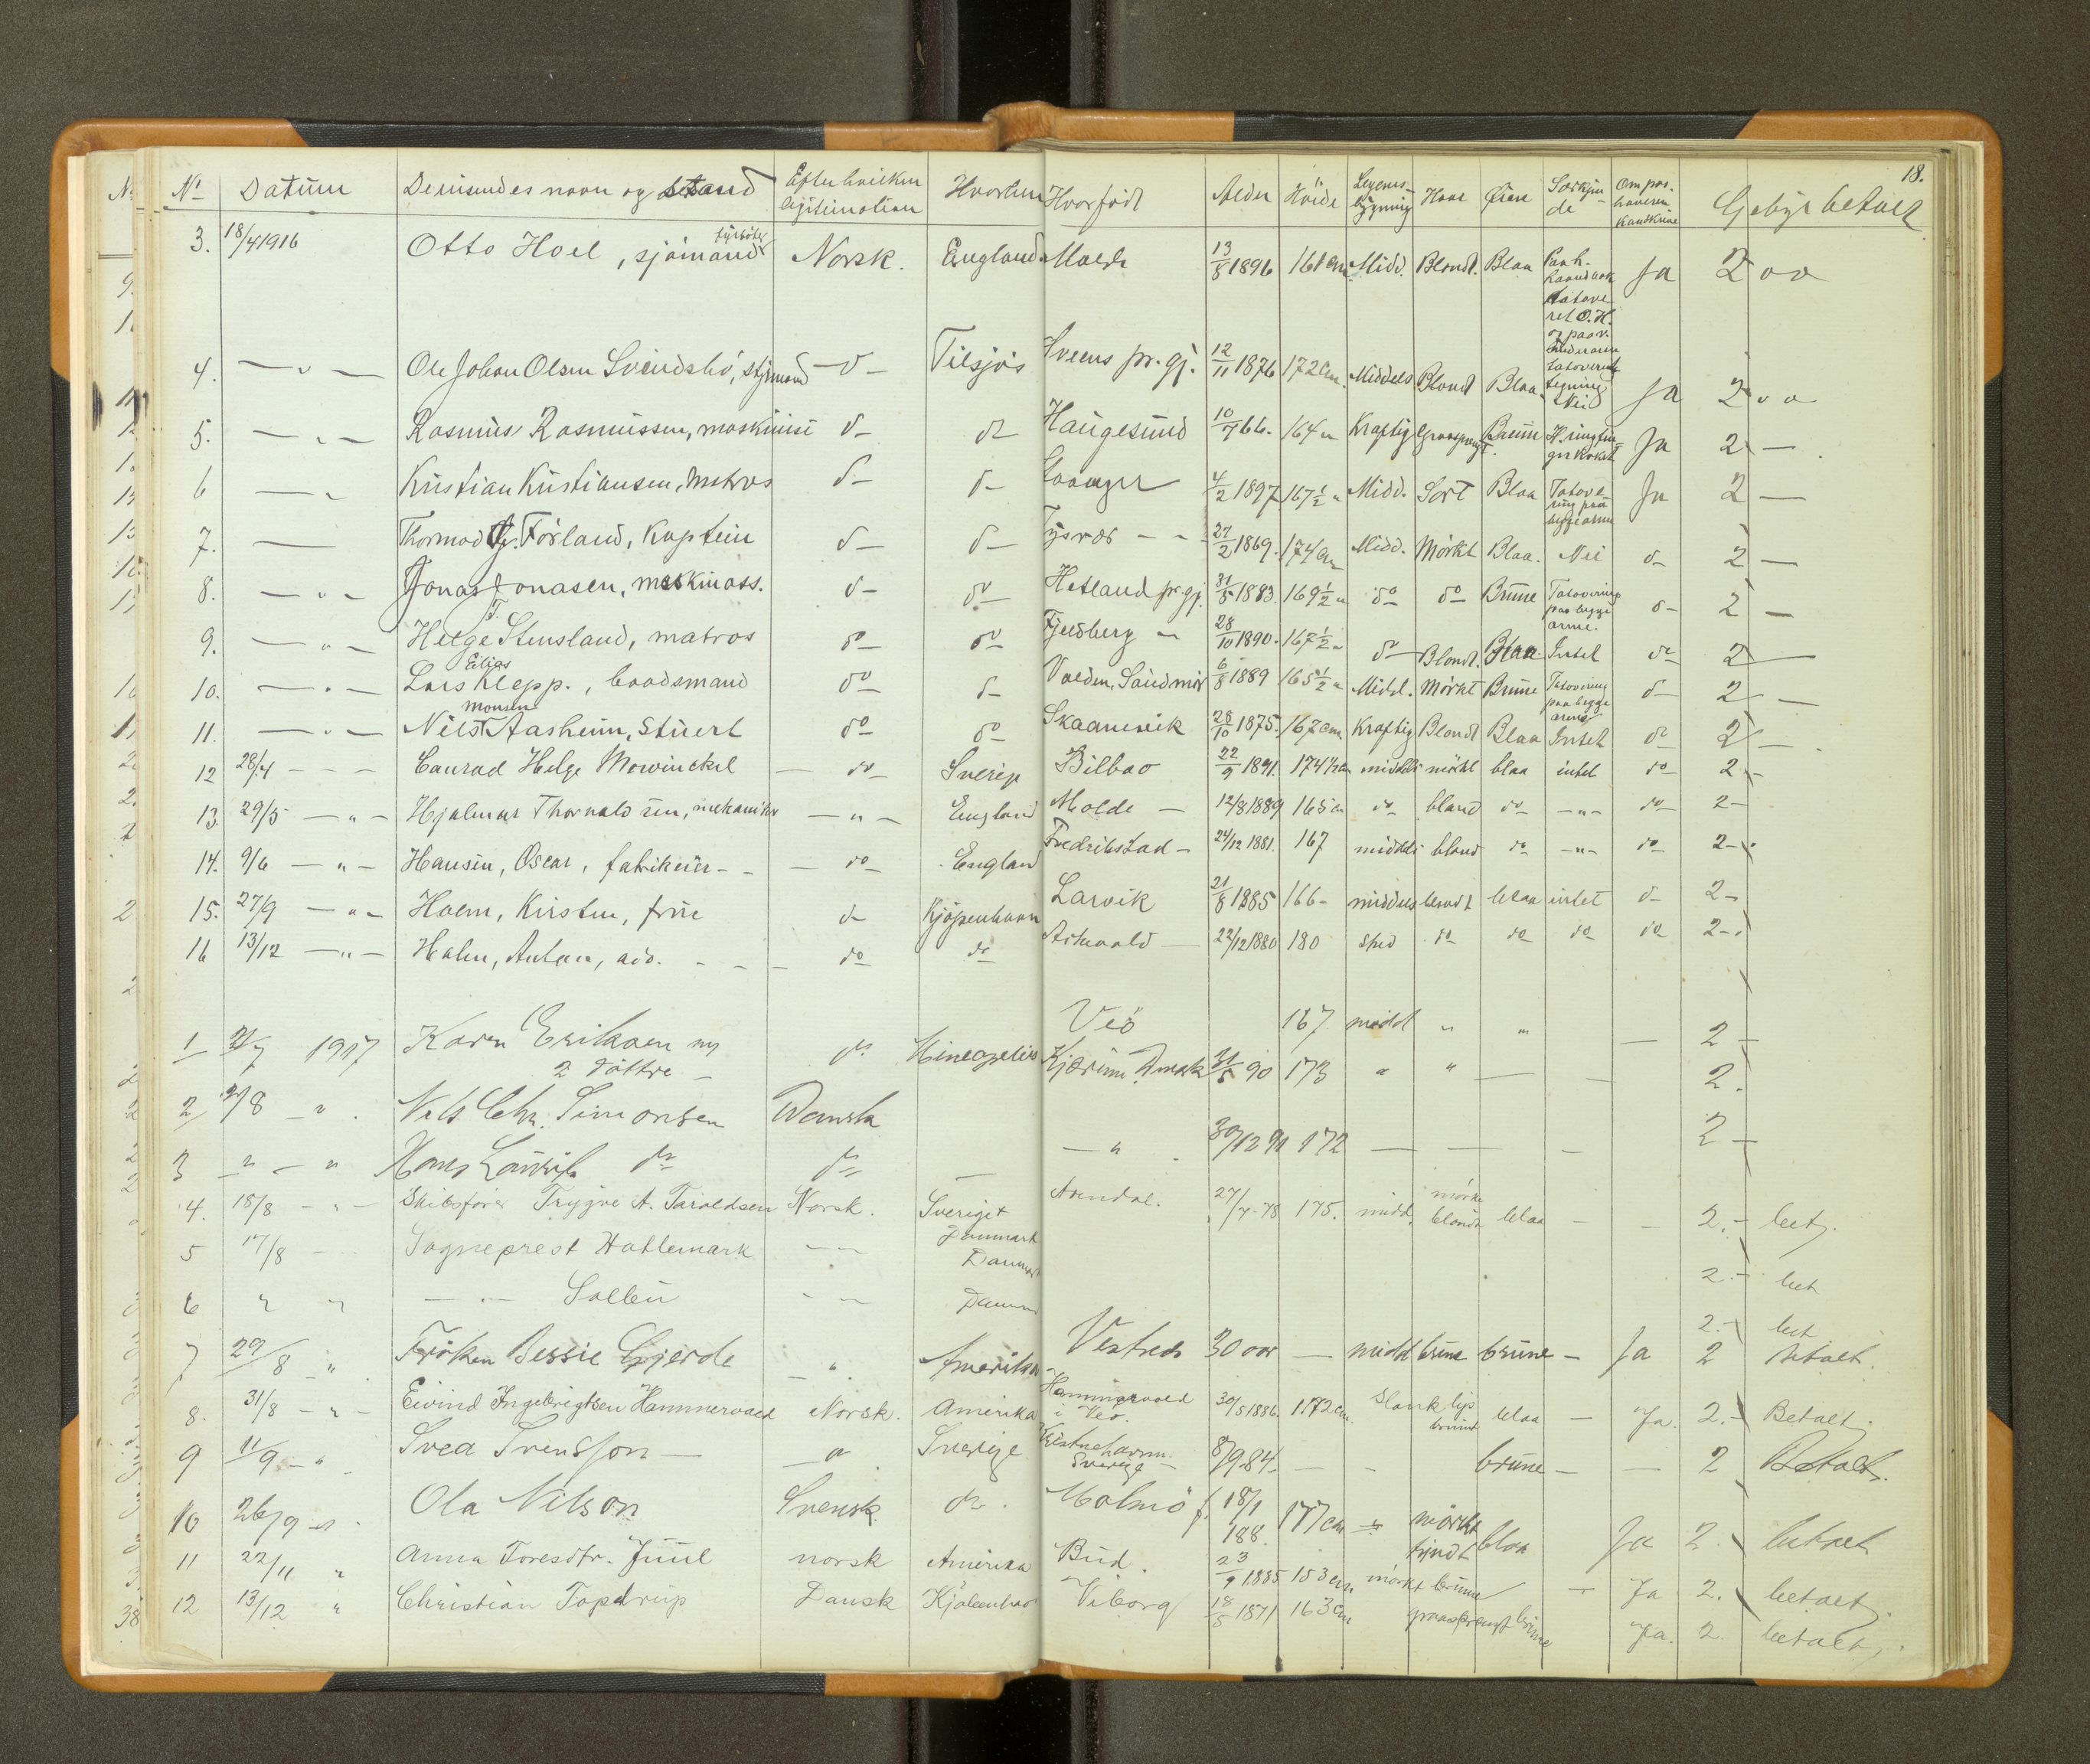 18.
No Datum Derusendes navn og stand Efter hvilken legitimation Hvorhen Hvor født Alder Høide Legemsbygning Haar Øine Særkjende Om pashaveren kan skrive Gebyr betalt
3. 18/4 1916 Otto Hoel, sjømand fyrbøter Norsk. England Molde 13/8 1896 161 cm. Midd. Blondt. Blaa Paa h. haandbak tatoveret O.H. og paa v. underarm tatoveret tegning Ja 2 00
4. — " — Ole Johan Olsen Svendsbö, styrmand — " — Tilsjøs Sveens pr.gj. 12/11 1876 172 cm. Middels Blond Blaa Nei Ja 2 00
5. — " — Rasmus Rasmussen, maskinist do do Haugesund 10/7 66. 164 " Kraftig Graasprængt. Brune H. ringfinger kroket Ja 2 —
6 — " Kristian Kristiansen, matros do do Stavanger 4/2 1897 167 1/2 " Midd. Sort Blaa Tatovering paa begge arme Ja 2 —
7. — Thormod Förland, Kaptein do do Tysvær — " 27/2 1869. 174 cm Midd. Mörkt Blaa. Nei do 2 —
8. — " — Jonas Jonasen, maskinass. do do Hetland pr.gj. 31/5 1883. 169 1/2 " do do Brune Tatovering paa begge arme. do 2 —
9. — " — Helge T. Stensland, matros do do Fjeldberg " 28/10 1890. 167 1/2 " do Blond. Blaa Intet do 2 —
10. — " — Lars Elias Klepp., baadsmand do do Volden, Söndmör 6/8 1889 165 1/2 " Midd. Mörkt Brune Tatovering paa begge arme do 2 —
11. — " — Nils Monsen Aasheim, Stuert do do Skaanevik 28/10 1875. 167 cm Kraftig Blond Blaa Intet do 2 —
12 28/4 — — Conrad Helge Mowinckel — do Sverige Bilbao 22/9 1891. 174 1/2 cm middels mörkt blaa intet do 2 -
13. 29/5 — " — Hjalmar Thorvaldsen, mekaniker — " — England Molde — 12/8 1889 165 cm do blond do — " — do 2 —
14. 9/6 — " — Hansen, Oscar, fabrikeier - - — do England Fredrikstad — 24/12 1881. 167 middels blond do — " — do 2 -
15. 27/9 — " — Holm, Kirsten, frue do Kjøpenhavn Larvik 21/8 1885 166 - middels blondt blaa intet do 2 -
16 13/12 — " — Holm, Anton, adv. - - - do do 22/12 1880 180 do do do do 2 -
1 1917 Karen Eriksen og 2 döttre — do Mineapolis Veö 167 midd " " — 2 —
2 /8 — " . Nils Chr. Simonsen Dansk Dmark 31/5 90 173 " " — — 2.
3 — " — " Hans Lauritz do do — — " . 30/12 91 172 — — — 2 —
4. 18/8 - " - Skibsfører Trygve A. Taraldsen Norsk. Sveriget Danmark Arendal. 27/7 - 78 175. midd. mörke blonde blaa — — 2. - bet.
5 17/8 - Sogneprest Hatlemark — " — Danmark 2. - bet
6 " " — " — Sollien — — Danm 2. - bet
7 29/8 — " . Frøken Bessie Gjerde — " . Amerika Vestnes 30 aar — midd brune brune — Ja 2 Betalt.
8. 31/8 - " - Eivind Ingebrigtsen Hammervold Norsk. Amerika Hammervold i Veö. 30/5 1886. 172 cm. Slank lys brunt blaa — Ja. 2. - Betalt.
9 11/9 - " - Svea Svensson — — " . Sverige Sverige 8/9 84. — - brune — — 2 Betalt.
10 26/9 " . Ola Nilson Svensk do . Malmö f. 18/1 188. 177 cm " mörkt tyndt blaa Ja 2. betalt
11 22/11 " Anna Toresdtr. Juul norsk Amerika Bud. 23/9 1885 153 cm mörkt brune — Ja 2. betalt.
12 13/12 " Christian Topdrup Dansk Kjøbenhav Viborg 18/5 1871 163 cm graasprængt brune Ja. 2. betalt.
38